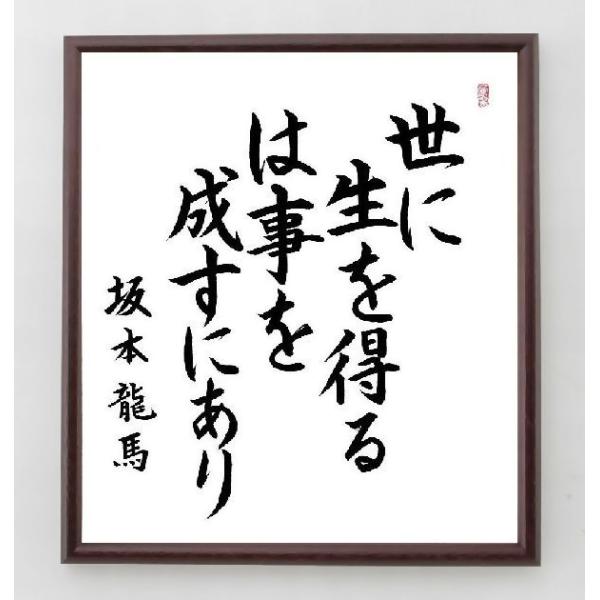 世に
生を得る
は事を
成すにあり
坂本龍馬